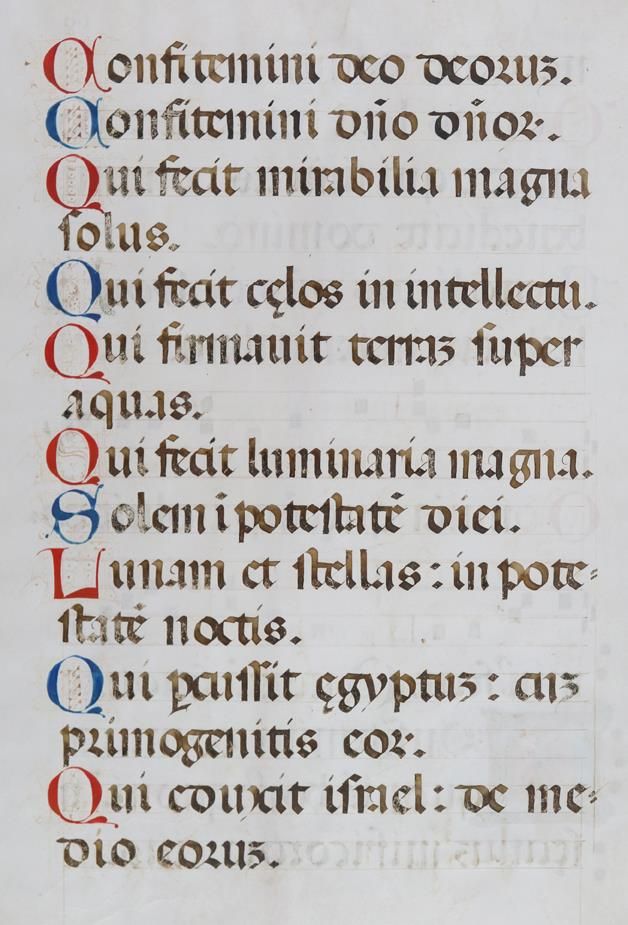 Confitemini deo deoruꝫ.
Confitemini dño dñoꝛ.
Qui fecit mirabilia magna
solus.
Qui fecit cęlos in intellectu.
Qui firmauit terraꝫ super
aquas.
Qui fecit luminaria magna.
Solem ī potestatē diei.
Lunam et stellas: in pote⸗
statē noctis.
Qui ꝑcussit ęgyptuꝫ: cuꝫ
primogenitis eoꝛ.
Qui eduxit israel: de me⸗
dio eoruꝫ.